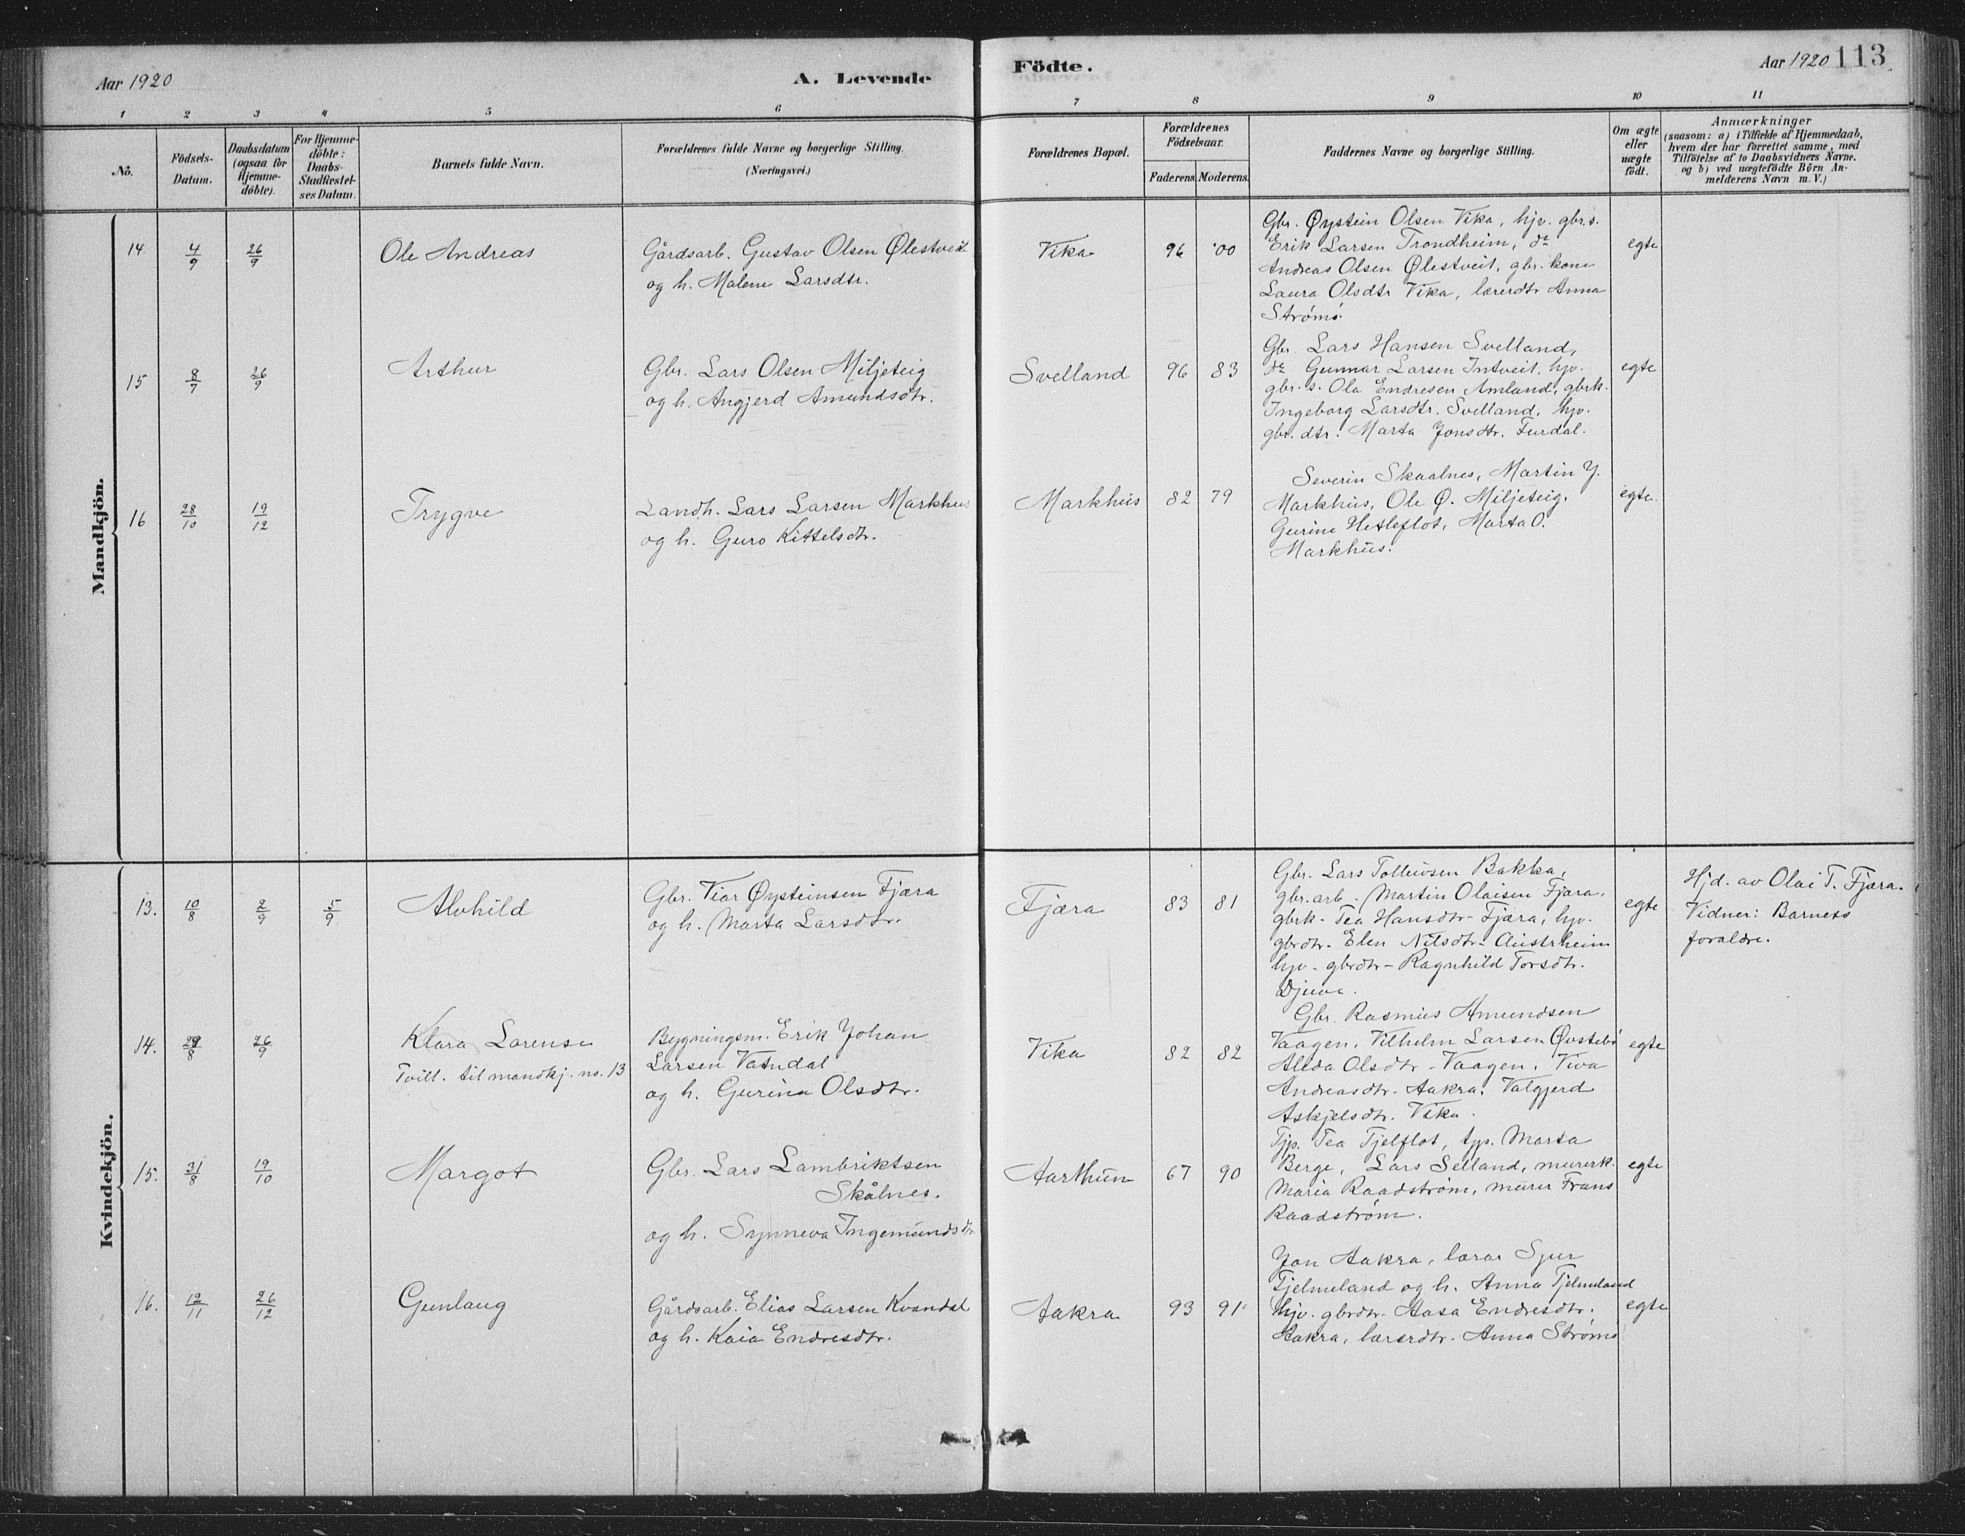 Aar 1920
A. Levende
Födte.
Aar 1920 113
1 2 3 4 5 6 7 8 9 10 11
No.
Födsels-
Datum.
Daabsdatum
(ogsaa for
Hjemme-
döbte).
For Hjemme-
döbte:
Daabs-
Stadfæstel-
ses Datum.
Barnets fulde Navn.
Forældrenes fulde Navne og borgerlige Stilling.
(Næringsvei.)
Forældrenes Bopæl.
Forældrenes
Födselsaar.
Faderens. Moderens.
Faddernes Navne og borgerlige Stilling.
Om ægte
eller
uægte
födt.
Anmærkninger
(saasom: a) i Tilfælde af Hjemmedaab,
hvem der har forrettet samme, med
Tilföielse af to Daabsvidners Navne,
og b) ved uægtefödte Börn An-
melderens Navn m. V.)
Mandkjön.
14 4/9 26/9
Ole Andreas
Gårdsarb. Gustav Olsen Ølestveit
og h. Malene Larsdtr.
Vika
96 '00
Gbr. Øystein Olsen Vika, hjv. gbr.s.
Erik Larsen Trondheim, do
Andreas Olsen Ølestveit, gbr. kone
Laura Olsdtr Vika, lærerdtr Anna
Strøms.
egte
15 8/7 26/9
Arthur
Gbr. Lars Olsen Miljeteig
og h. Angjerd Amundsdtr.
Svelland
96 83
Gbr. Lars Hansen Svelland,
do Gunnar Larsen Intveit, hjv.
gbr.s. Ola Endresen Amland, gbrk.
Ingeborg Larsdtr. Svelland, hjv.
gbr. dtr. Marta Jonsdtr. Furdal.
egte
16 28/10 19/12
Trygve
Landh. Lars Larsen Markhus
og h. Guro Kittelsdtr.
Markhus
82 79
Severin Skaalnes, Martin Y.
Markhus, Ole Ø. Miljeteig,
Gurine Hetleflot, Marta O.
Markhus.
egte.
Kvindekjön.
13. 10/8 2/9 5/9
Alvhild
Gbr. Vior Øysteinsen Fjæra
og h. Marta Larsdtr.
Fjæra
83 81
Gbr. Lars Tolleivsen Bakka,
gbr.arb. Martin Olaisen Fjæra.
gbrk. Tea Hansdtr. Fjæra, hjv.
gbrdtr. Elen Nilsdtr. Austrheim
hjv. gbrdtr. Ragnhild Torsdtr.
Djuve.
egte
Hjd. av Olai T. Fjæra.
Vidner: Barnets
foraldre.
14. 29/8 26/9
Klara Lorense
Tvill. til mandkj. no. 13
Bygningsm. Erik Johan
Larsen Vatndal
og h. Gurina Olsdtr.
Vika
82 82
Gbr. Rasmus Amundsen
Vaagen, Vilhelm Larsen Øvstebø
Alida Olsdtr. Vaagen, Viva
Andreasdtr. Aakra, Valgjerd
Askjelsdtr. Vika.
egte
15. 31/8 19/10
Margot
Gbr. Lars Lambriktsen
Skålnes.
og h. Synneva Ingemundsdtr
Aarthun
67 90
Tjp. Tea Tjelflot, tjp. Marta
Berge, Lars Selland, murerk.
Maria Raadstrøm, murer Frans
Raadstrøm.
egte
16. 12/11 26/12
Gunlaug
Gårdsarb. Elias Larsen Kvandal
og h. Kaia Endresdtr.
Aakra
93 91
Jon Aakra, lærar Sjur
Tjelmeland og h. Anna Tjelmeland
hjv. gbrdtr. Aasa Endresdtr.
Aakra, lærerdtr. Anna Strøms
egte